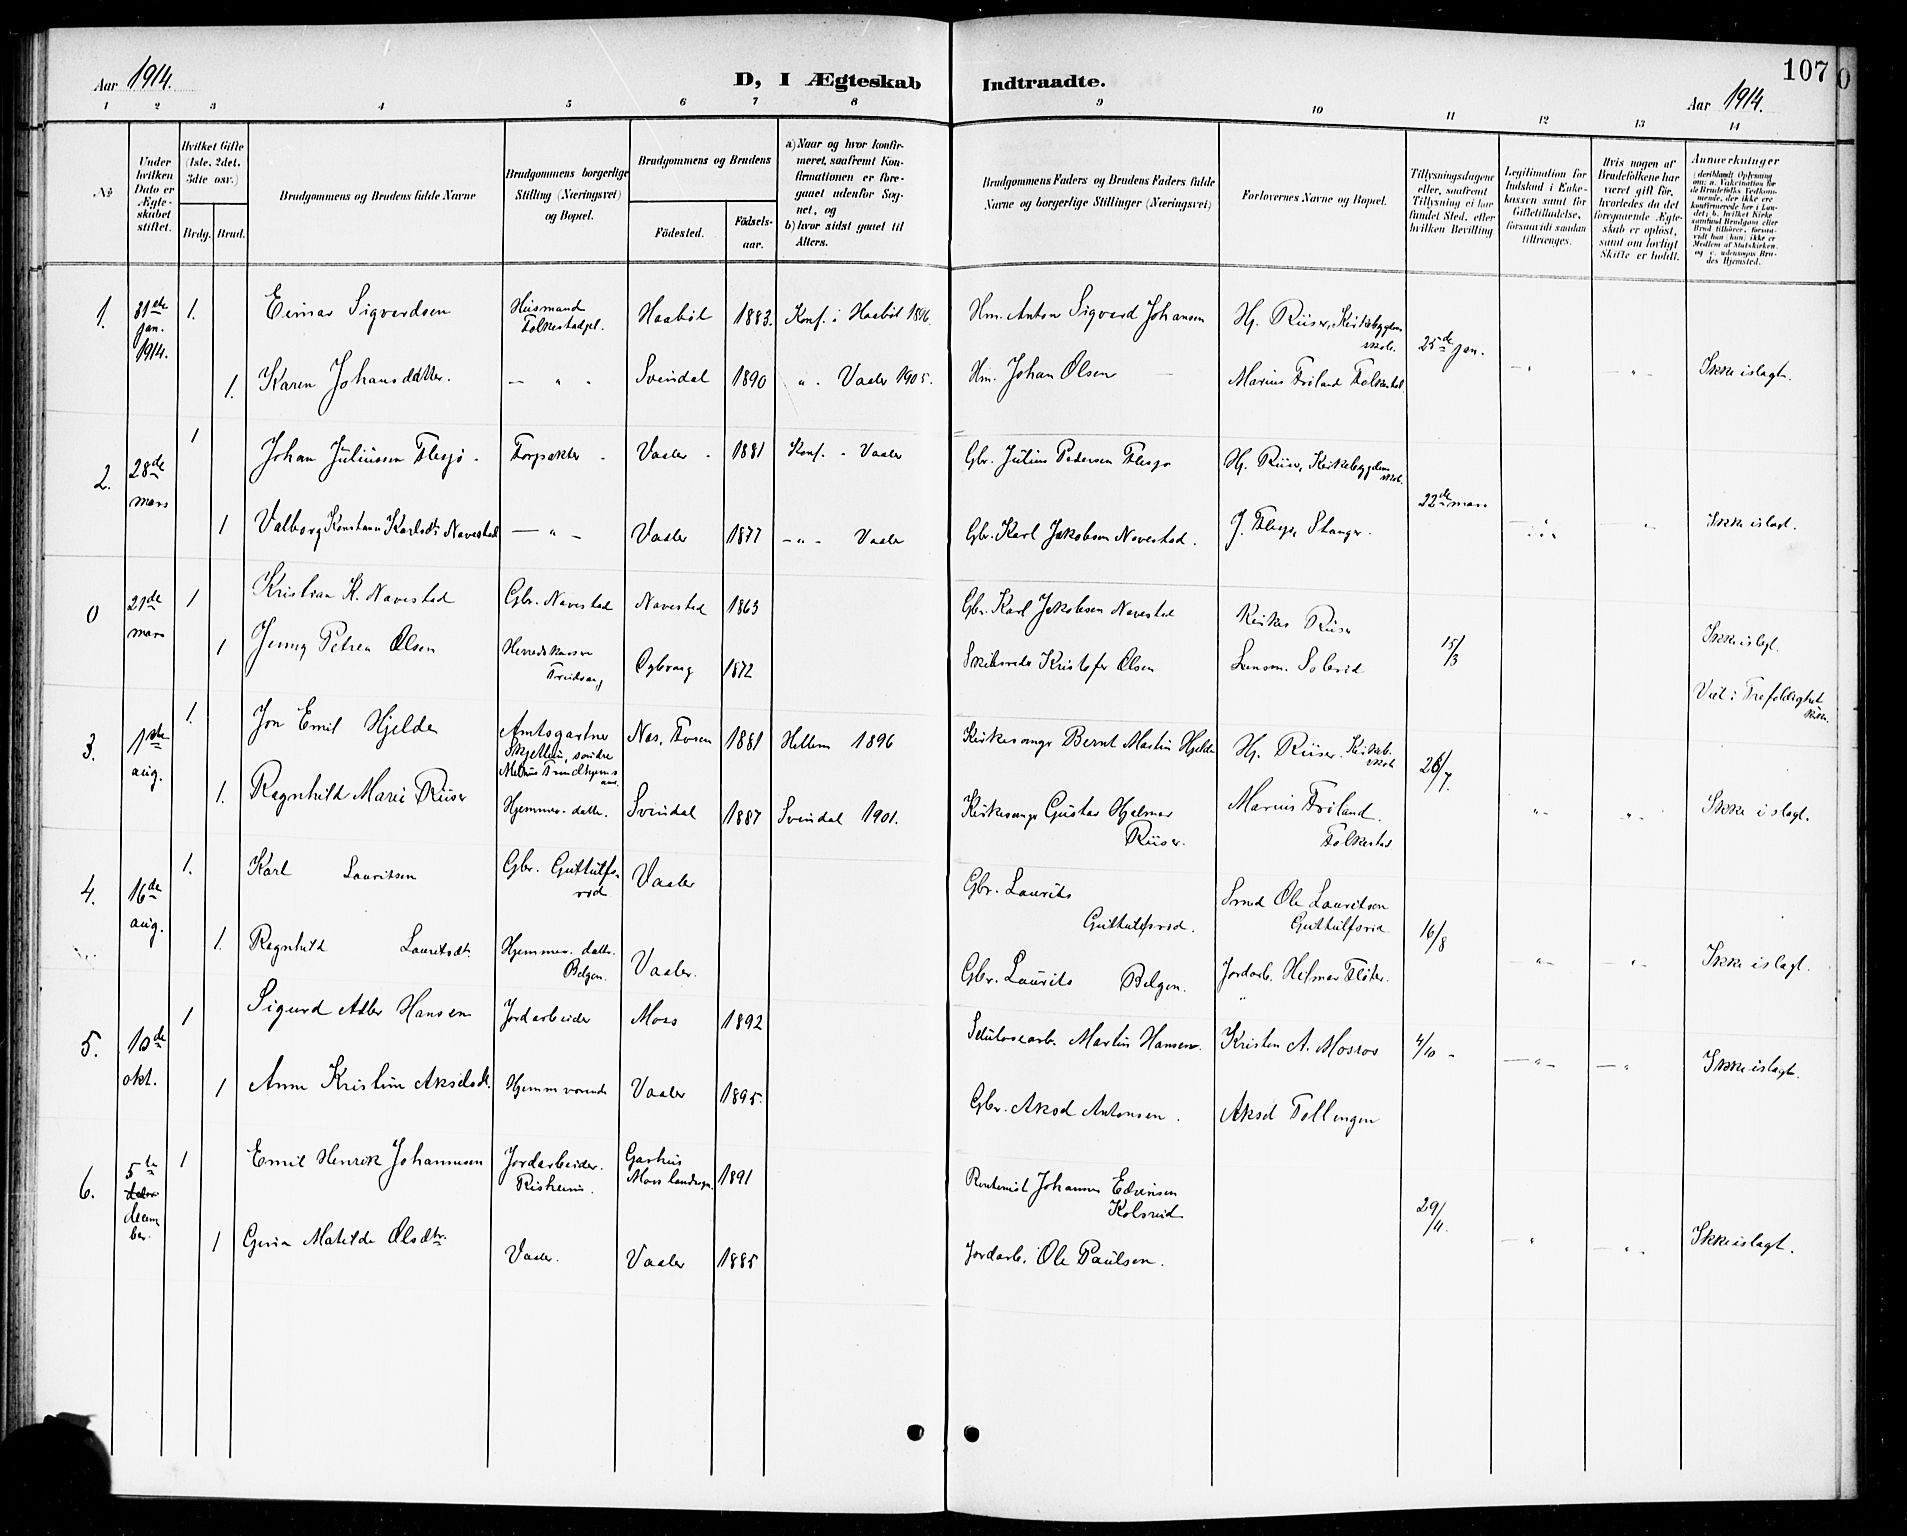 107
Aar 1914.
D, I Ægteskab Indtraadte.
Aar 1914.
1 2 3 4 5 6 7 8 9 10 11 12 13 14
No
Under hvilken Dato er Ægteskabet stiftet.
Hvilket Gifte (1ste, 2det, 3die osv.)
Brdg. Brud.
Brudgommens og Brudens fulde Navne
Brudgommens borgerlige Stilling (Næringsvei) og Bopæl.
Brudgommens og Brudens
Fødested. Fødselsaar.
a) Naar og hvor konfirmeret, saafremt Konfirmationen er foregaaet udenfor Sognet, og
b) hvor sidst gaaet til Alters.
Brudgommens Faders og Brudens Faders fulde Navne og borgerlige Stillinger (Næringsvei)
Forlovernes Navne og Bopæl.
Tillysningsdagene eller, saafremt Tillysning ei har fundet Sted, efter hvilken Bevilling
Legitimation for Indskud i Enkekassen samt for Giftetilladelse, forsaavidt saadan tiltrænges.
Hvis nogen af Brudefolkene har været gift før, hvorledes da det foregaaende Ægteskab er opløst, samt om lovligt Skifte er holdt.
Anmerkninger
1. 31te jan. 1914. 1. Einar Sigvardsen Husmand Folkestadpl. Haabøl 1883. Konf. i Haabøl 1896. Hm. Anton Sigvard Johansen Hj. Riiser, Kirkebygdens skole. 25de jan.
1. Karen Johansdatter. — " - Svindal 1890 ". Vaaler 1905. Hm. Johan Olsen Marius Frøland Folkestad —"— —"— Ikke islagt.
2. 28de mars 1 Johan Juliussen Flesjø - Forpakter - Vaaler - 1881 Konf. - Vaaler Gbr. Julius Pedersen Flesjø Hj. Riiser, Kirkebygdens skole. 22de mars
1 Valborg Konstanse Karlsdt. Navestad — " — Vaaler 1877 —"— Vaaler Gbr. Karl Jakobsen Navestad. J. Flesjø, Stanger. —"— —"— Ikke islagt.
0 21de mars 1 Kristian K. Navestad Gbr. Navestad Navestad 1863 Gbr. Karl Jakobsen Navestad Kirkes. Riiser 15/3
1 Jenny Petrea Olsen 1872 Skibsreder Kristofer Olsen Lensm. Solerød Ikke islagt.
Viet i Trefoldighet kirke.
3. 1ste aug. 1. Jon Emil Hjelde Amtsgartner Skjetlein, søndre Melhus Trondhjems amt. Nes, Fosen 1881 Hitlem 1896 Kirkesanger Bernt Martin Hjelde Hj. Riiser. Kirkeb. skole 26/7
1. Ragnhild Marie Riiser Hjemmev. datter. Svindal 1887 Svindal 1901. Kirkesanger Gustav Hjalmar Riiser. Marius Frøland. Folkestad —"— —"— Ikke islagt.
4. 16de aug. 1. Karl Lauritsen Gbr. Guttulfsrød Vaaler Gbr. Laurits Guttulfsrød. Smed Ole Lauritsen Guttulfsrød 16/8
1. Ragnhild Lauritsdt. Hjemmev. datter. Belgen. Vaaler. Gbr. Laurits Belgen. Jordarb. Hilmar Fløter. —"— —"— Ikke islagt.
5. 10de okt. 1 Sigurd Adler Hansen Jordarbeider Moss 1892 Martin Hansen. Kristen A. Mosrøs 4/10 -
1 Anna Kristine Akselsdt. Hjemmværende Vaaler 1895. Gbr. Aksel Antonsen. Aksel Tollungen —"— —"— Ikke islagt.
6. 5te december. 1 Emil Henrik Johannesen Jordarbeider. Risheim. Garhus Moss landsogn. 1891 Rentenist Johannes Edvinsen Kolsrud 29/11.
1 Matilde Olsdtr. Vaaler. Vaaler 1885 Jordarb. Ole Paulsen. —"— —"— Ikke islagt.